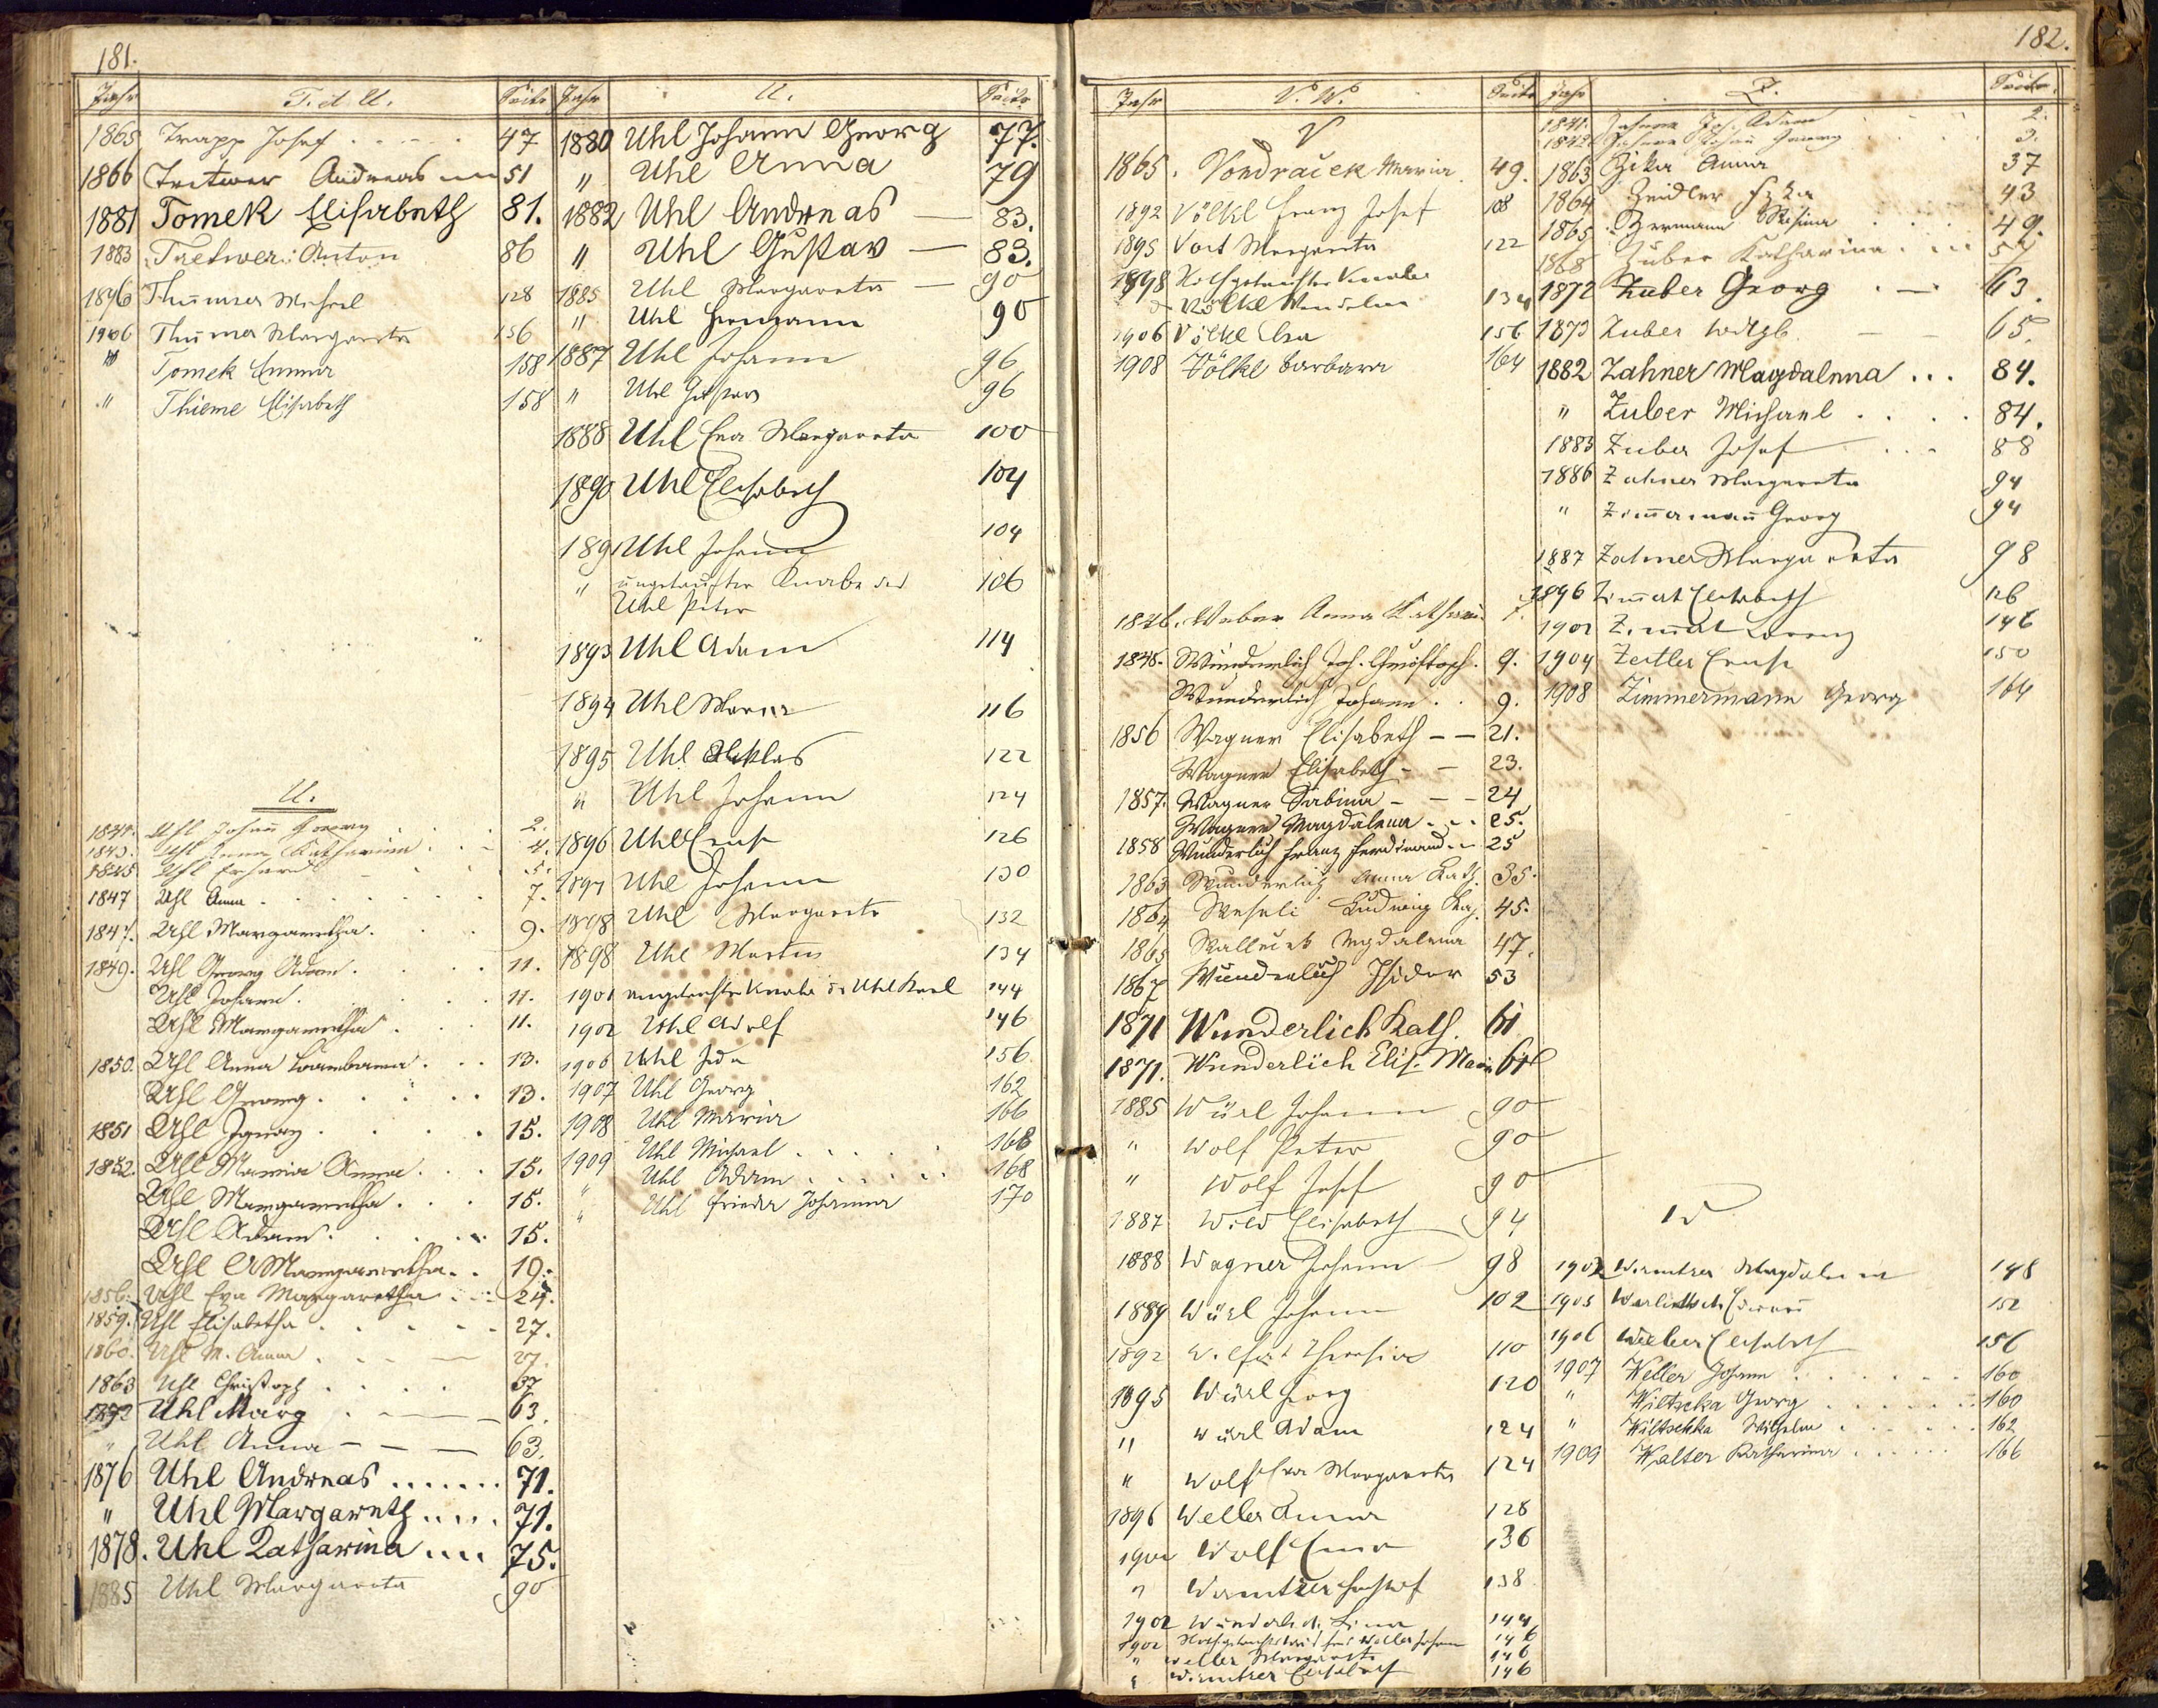 181.
Jahr T. et U. Seite
1865 Trapp Josef 47
1866 Tretwer Andreas 51
1881 Tomek Elisabeth 81.
1883 Tretwer Anton 86
1896 Thumser Michael 128
1906 Thuma Margareta 156
" Tomek Emma 158
" Thieme Elisabeth 158
U.
1841. Uhl Johañ Georg 2.
1843. Uhl Anna Katharina 4.
1845 Uhl Erhard 5.
1847 Uhl Anna 7.
1847. Uhl Margaretha 9.
1849. Uhl Georg Adam 11.
Uhl Johann 11.
Uhl Margaretha 11.
1850. Uhl Anna Barbara 13.
Uhl Georg 13.
1851 Uhl Ignaz 15.
1852. Uhl Maria Anna 15.
Uhl Margaretha 15.
Uhl Adam 15.
Uhl Margaretha 19.
1856. Uhl Eva Margaretha 24.
1859. Uhl Elisabetha 27.
1860. Uhl M. Anna 27.
1863 Uhl Christoph 37
1872 Uhl Marg 63.
" Uhl Anna 63.
1876 Uhl Andreas 71.
" Uhl Margareth 71.
1878. Uhl Katharina 75.
1885 Uhl Margareta 90
Jahr U. Seite
1880 Uhl Johann Georg 77.
" Uhl Anna 79
1882 Uhl Andreas 83.
" Uhl Gustav 83.
1885 Uhl Margareta 90
" Uhl Hermann 90
1887 Uhl Johann 96
" Uhl Gustav 96
1888 Uhl Eva Margareta 100
1890 Uhl Elisabeth 104
1891 Uhl Johann 104
" ungetaufter Knabe des 106
Uhl Peter
1893 Uhl Adam 114
1894 Uhl Maria 116
1895 Uhl Niklas 122
" Uhl Johann 124
1896 Uhl Ernst 126
1897 Uhl Johann 130
1898 Uhl Margareta 132
1898 Uhl Martin 134
1901 ungetaufter Knabe d. Uhl Karl 144
1902 Uhl Adolf 146
1906 Uhl Ida 156
1907 Uhl Georg 162
1908 Uhl Maria 166
1909 Uhl Michael 168
" Uhl Adam 168
" Uhl Frieda Johanna 170
182.
Jahr V. W. Seite
V
1865. Vondraček Maria 49.
1892 Völkl Franz Josef 108
1895 Voit Margareta 122
1898 Nothgetaufter Knabe
Völkl 134
1906 Völkl Eva 156
1908 Völkl Barbara 164
1846. Weber Anna Katharin 7.
1848. Wunderlich Joh. Christoph. 9.
Wunderlich Johann 9.
1856 Wagner Elisabeth 21.
Wagner Elisabeth 23.
1857. Wagner Sabina 24
Wagner Magdalena 25.
1858 Wunderlich Franz Ferdinand 25
1863 Wunderlich Anna Kath. 35.
1864 Ludwig 45.
1865 Magdalena 47.
1867 Wunderlich Isidor 53
1871 Wunderlich Kath. 61
1871. Wunderlich Elis. Mari 61
1885 Würl Johann 90
" Wolf Peter 90
" Wolf Josef 90
1887 Wild Elisabeth 94
1888 Wagner Johann 98
1889 Würl Johann 102
1892 Theresia 110
1895 Würl Georg 120
" Würl Adam 124
" Wolf Eva Margareta 124
1896 Weller Anna 128
1900 Wolf 136
" 138
1902 Wunderlich Lina 144
1902 Weller Johann 146
" Weller Margareta 146
" Elisabeth 146
Jahr Z. Seite
1841. Zahner Joh. Adam 2.
1842. Zahner Johañ Georg 3.
1863 Zika Anna 37
1864 Zeidler 43
1865 Zermann Rosina 49.
1868 Zuber Katharina 57
1872 Zuber Georg 63.
1873 Zuber 65.
1882 Zahner Magdalena 84.
" Zuber Michael 84.
1883 Zuber Josef 88
1886 Zahner Margareta 94
" Zim̃ermañ Georg 94
1887 Zahner Margareta 98
1896 Elisabeth 126
1902 Lorenz 146
1904 Zeitler Ernst 150
1908 Zimmermann Georg 164
W
1903 Magdalena 148
1905 Eduard 152
1906 Weber Elisabeth 156
1907 Weller Johann 160
" Wiltschka Georg 160
" Wiltschka Wilhelm 162
1909 Walter Katharina 166